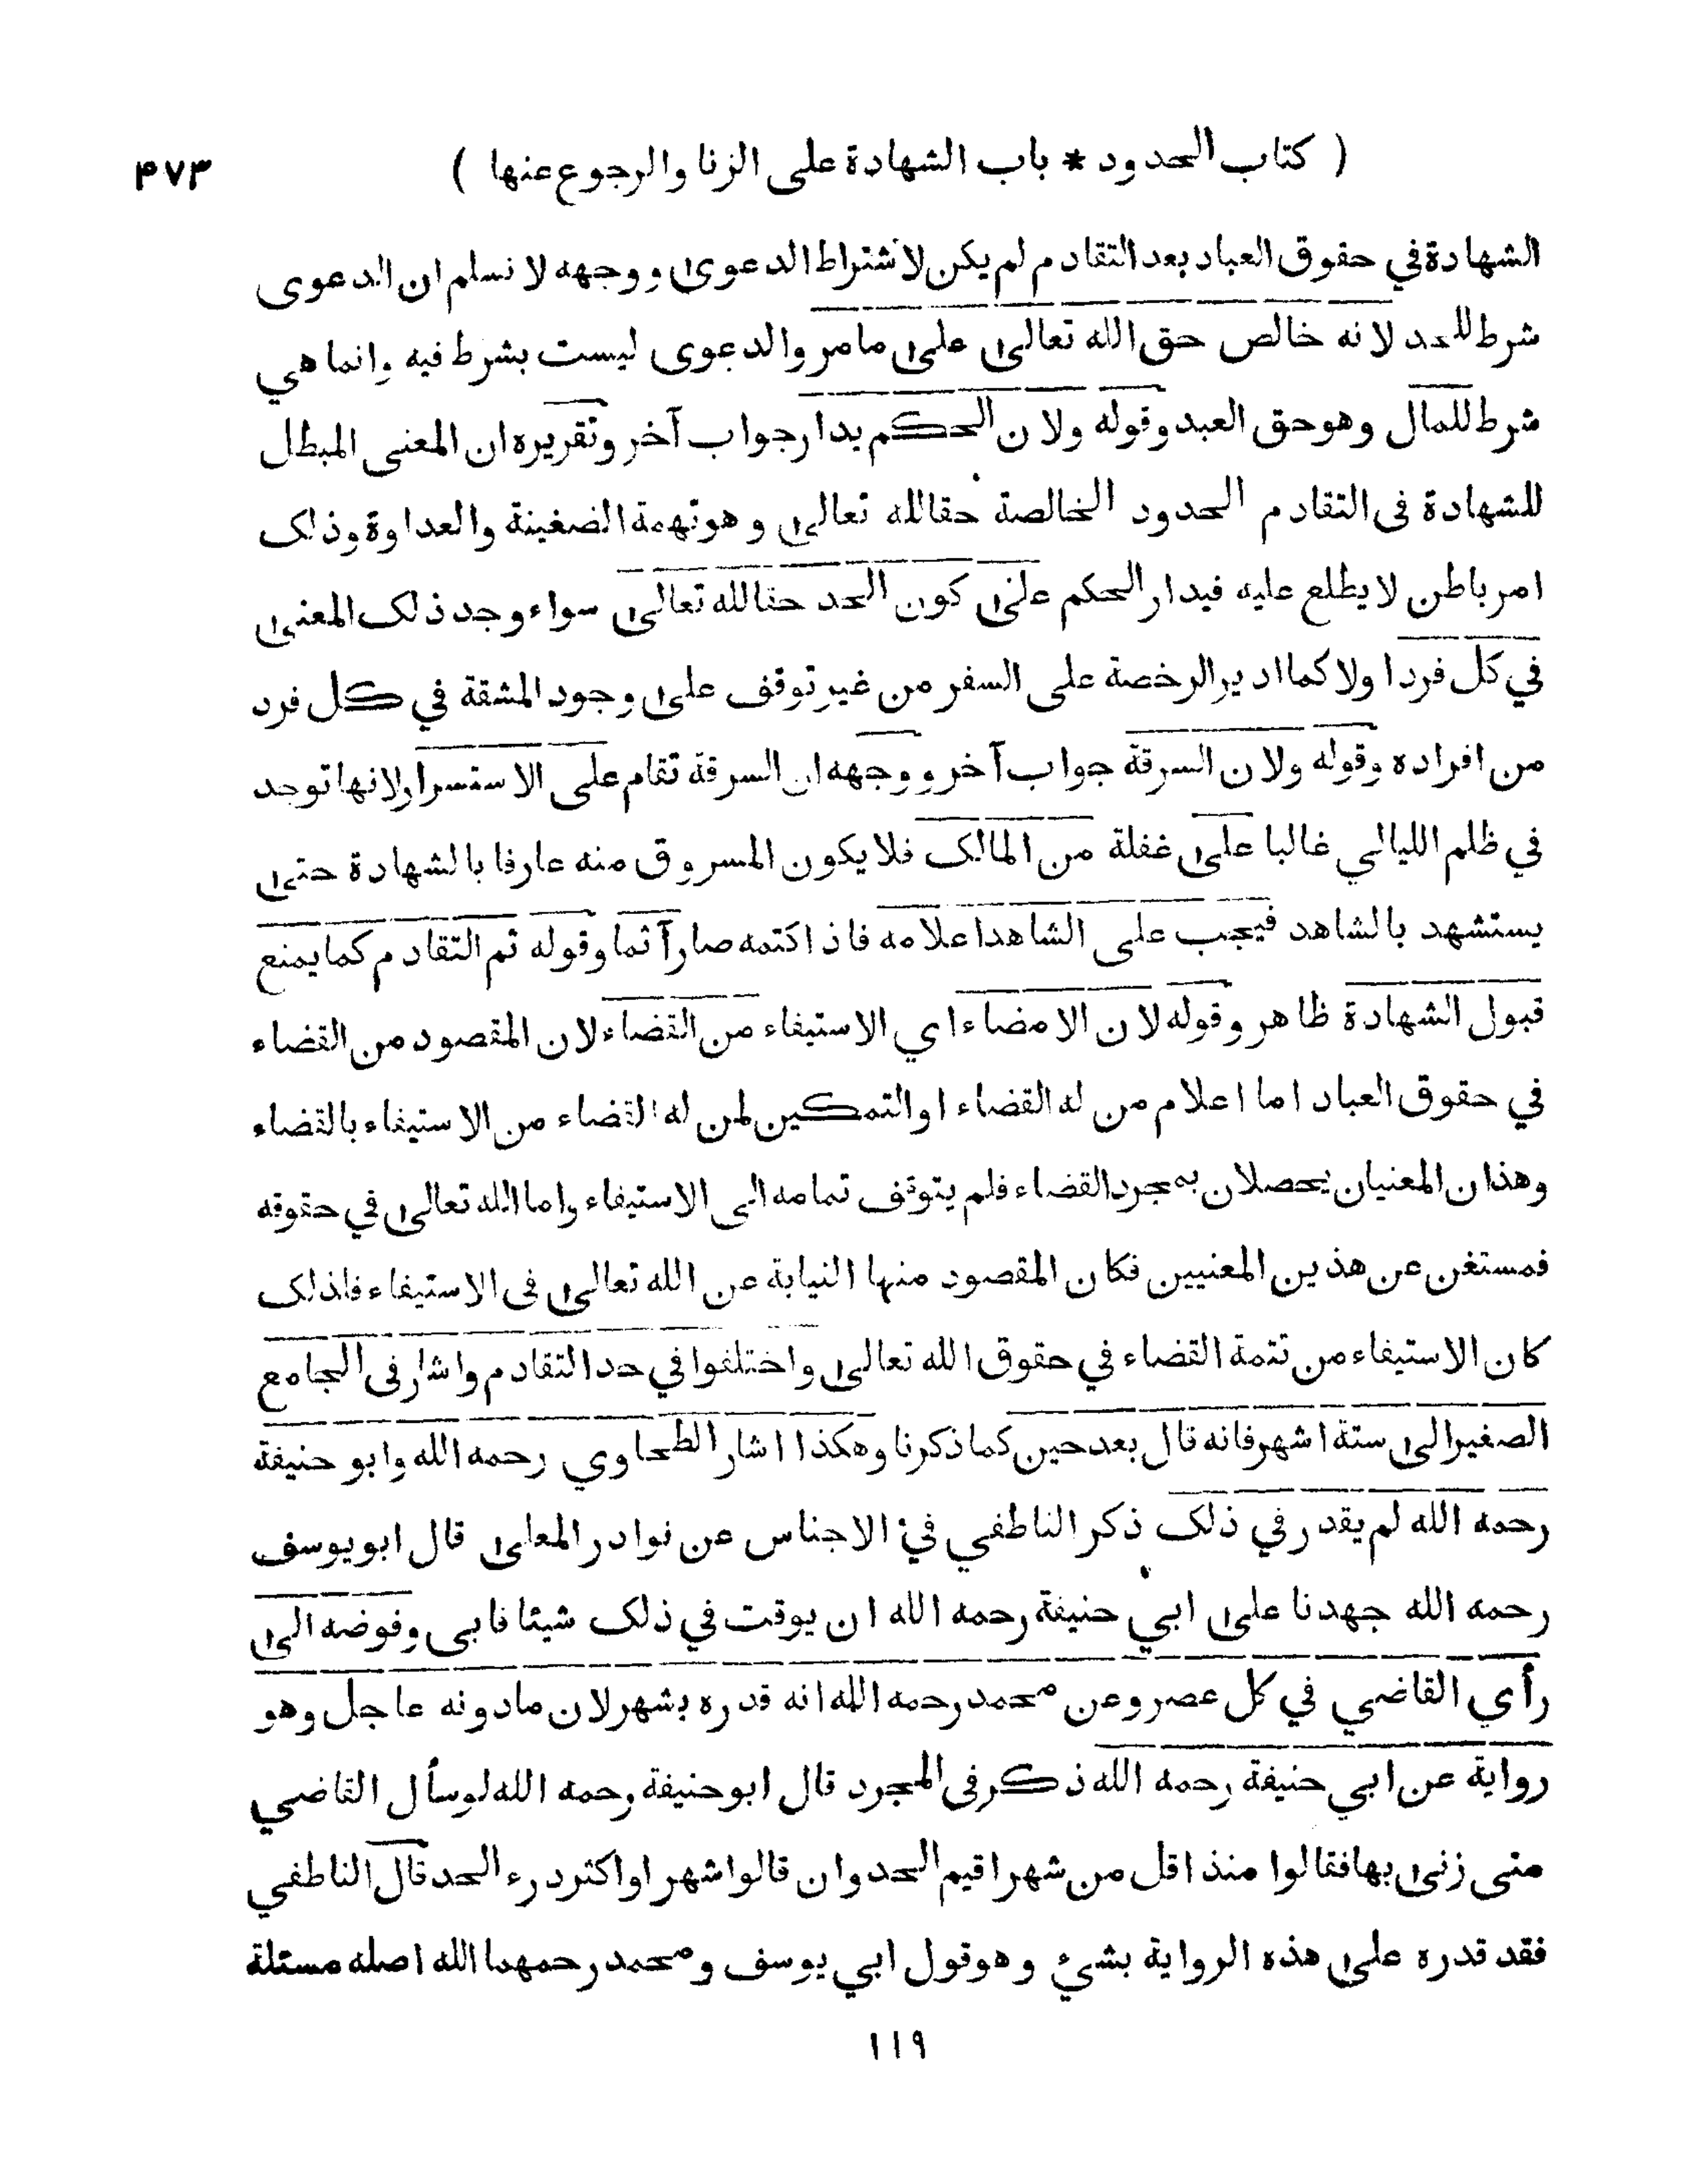 ( كتاب الحدود * باب الشهادة على الزنا والرجوع عنها )
۴۷۳
الشهادة في حقوق العباد بعد التقادم لم يكن لاشتراط الدعوى ووجهه لا نسلم ان الدعوى
شرط للحد لانه خالص حق الله تعالى على ما مر والدعوى ليست بشرط فيه وانما هي
شرط للمال وهو حق العبد وقوله ولان الحكم يدار جواب آخر وتقريره ان المعنى المبطل
للشهادة فى التقادم الحدود الخالصة حقا لله تعالى وهو تهمة الضغينة والعداوة وذلك
امر باطن لا يطلع عليه فيدار الحكم على كون الحد حقا لله تعالى سواء وجد ذلك المعنى
في كل فرد اولا كما ادير الرخصة على السفر من غير توقف على وجود المشقة في كل فرد
من افراده وقوله ولان السرقة جواب آخر ووجهه ان السرقة تقام على الاستسرار لانها توجد
في ظلم الليالي غالبا على غفلة من المالك فلا يكون المسروق منه عارفا بالشهادة حتى
يستشهد بالشاهد فيجب على الشاهد اعلامه فاذا كتمه صار آثما وقوله ثم التقادم كما يمنع
قبول الشهادة ظاهر وقوله لان الامضاء اي الاستيفاء من القضاء لان المقصود من القضاء
في حقوق العباد اما اعلام من له القضاء او التمكين لمن له القضاء من الاستيفاء بالقضاء
وهذان المعنيان يحصلان بمجرد القضاء فلم يتوقف تمامه الى الاستيفاء واما الله تعالى في حقوقه
فمستغن عن هذين المعنيين فكان المقصود منها النيابة عن الله تعالى فى الاستيفاء فاذلك
كان الاستيفاء من تتمة القضاء في حقوق الله تعالى واختلفوا في حد التقادم واشار فى الجامع
الصغير الى ستة اشهر فانه قال بعد حين كما ذكرنا وهكذا اشار الطحاوي رحمه الله وابو حنيفة
رحمه الله لم يقدر في ذلك ذكر الناطفي في الاجناس عن نوادر المعلى قال ابو يوسف
رحمه الله جهدنا على ابي حنيفة رحمه الله ان يوقت في ذلك شيئا فابى وفوضه الى
رأي القاضي في كل عصر وعن محمد رحمه الله انه قدره بشهر لان ما دونه عاجل وهو
رواية عن ابي حنيفة رحمه الله ذكر فى المجرد قال ابو حنيفة رحمه الله لو سأل القاضي
متى زنى بها فقالوا منذ اقل من شهر اقيم الحد وان قالوا شهر او اكثر درء الحد قال الناطفي
فقد قدره على هذه الرواية بشئ وهو قول ابي يوسف ومحمد رحمهما الله اصله مسئلة
١١٩